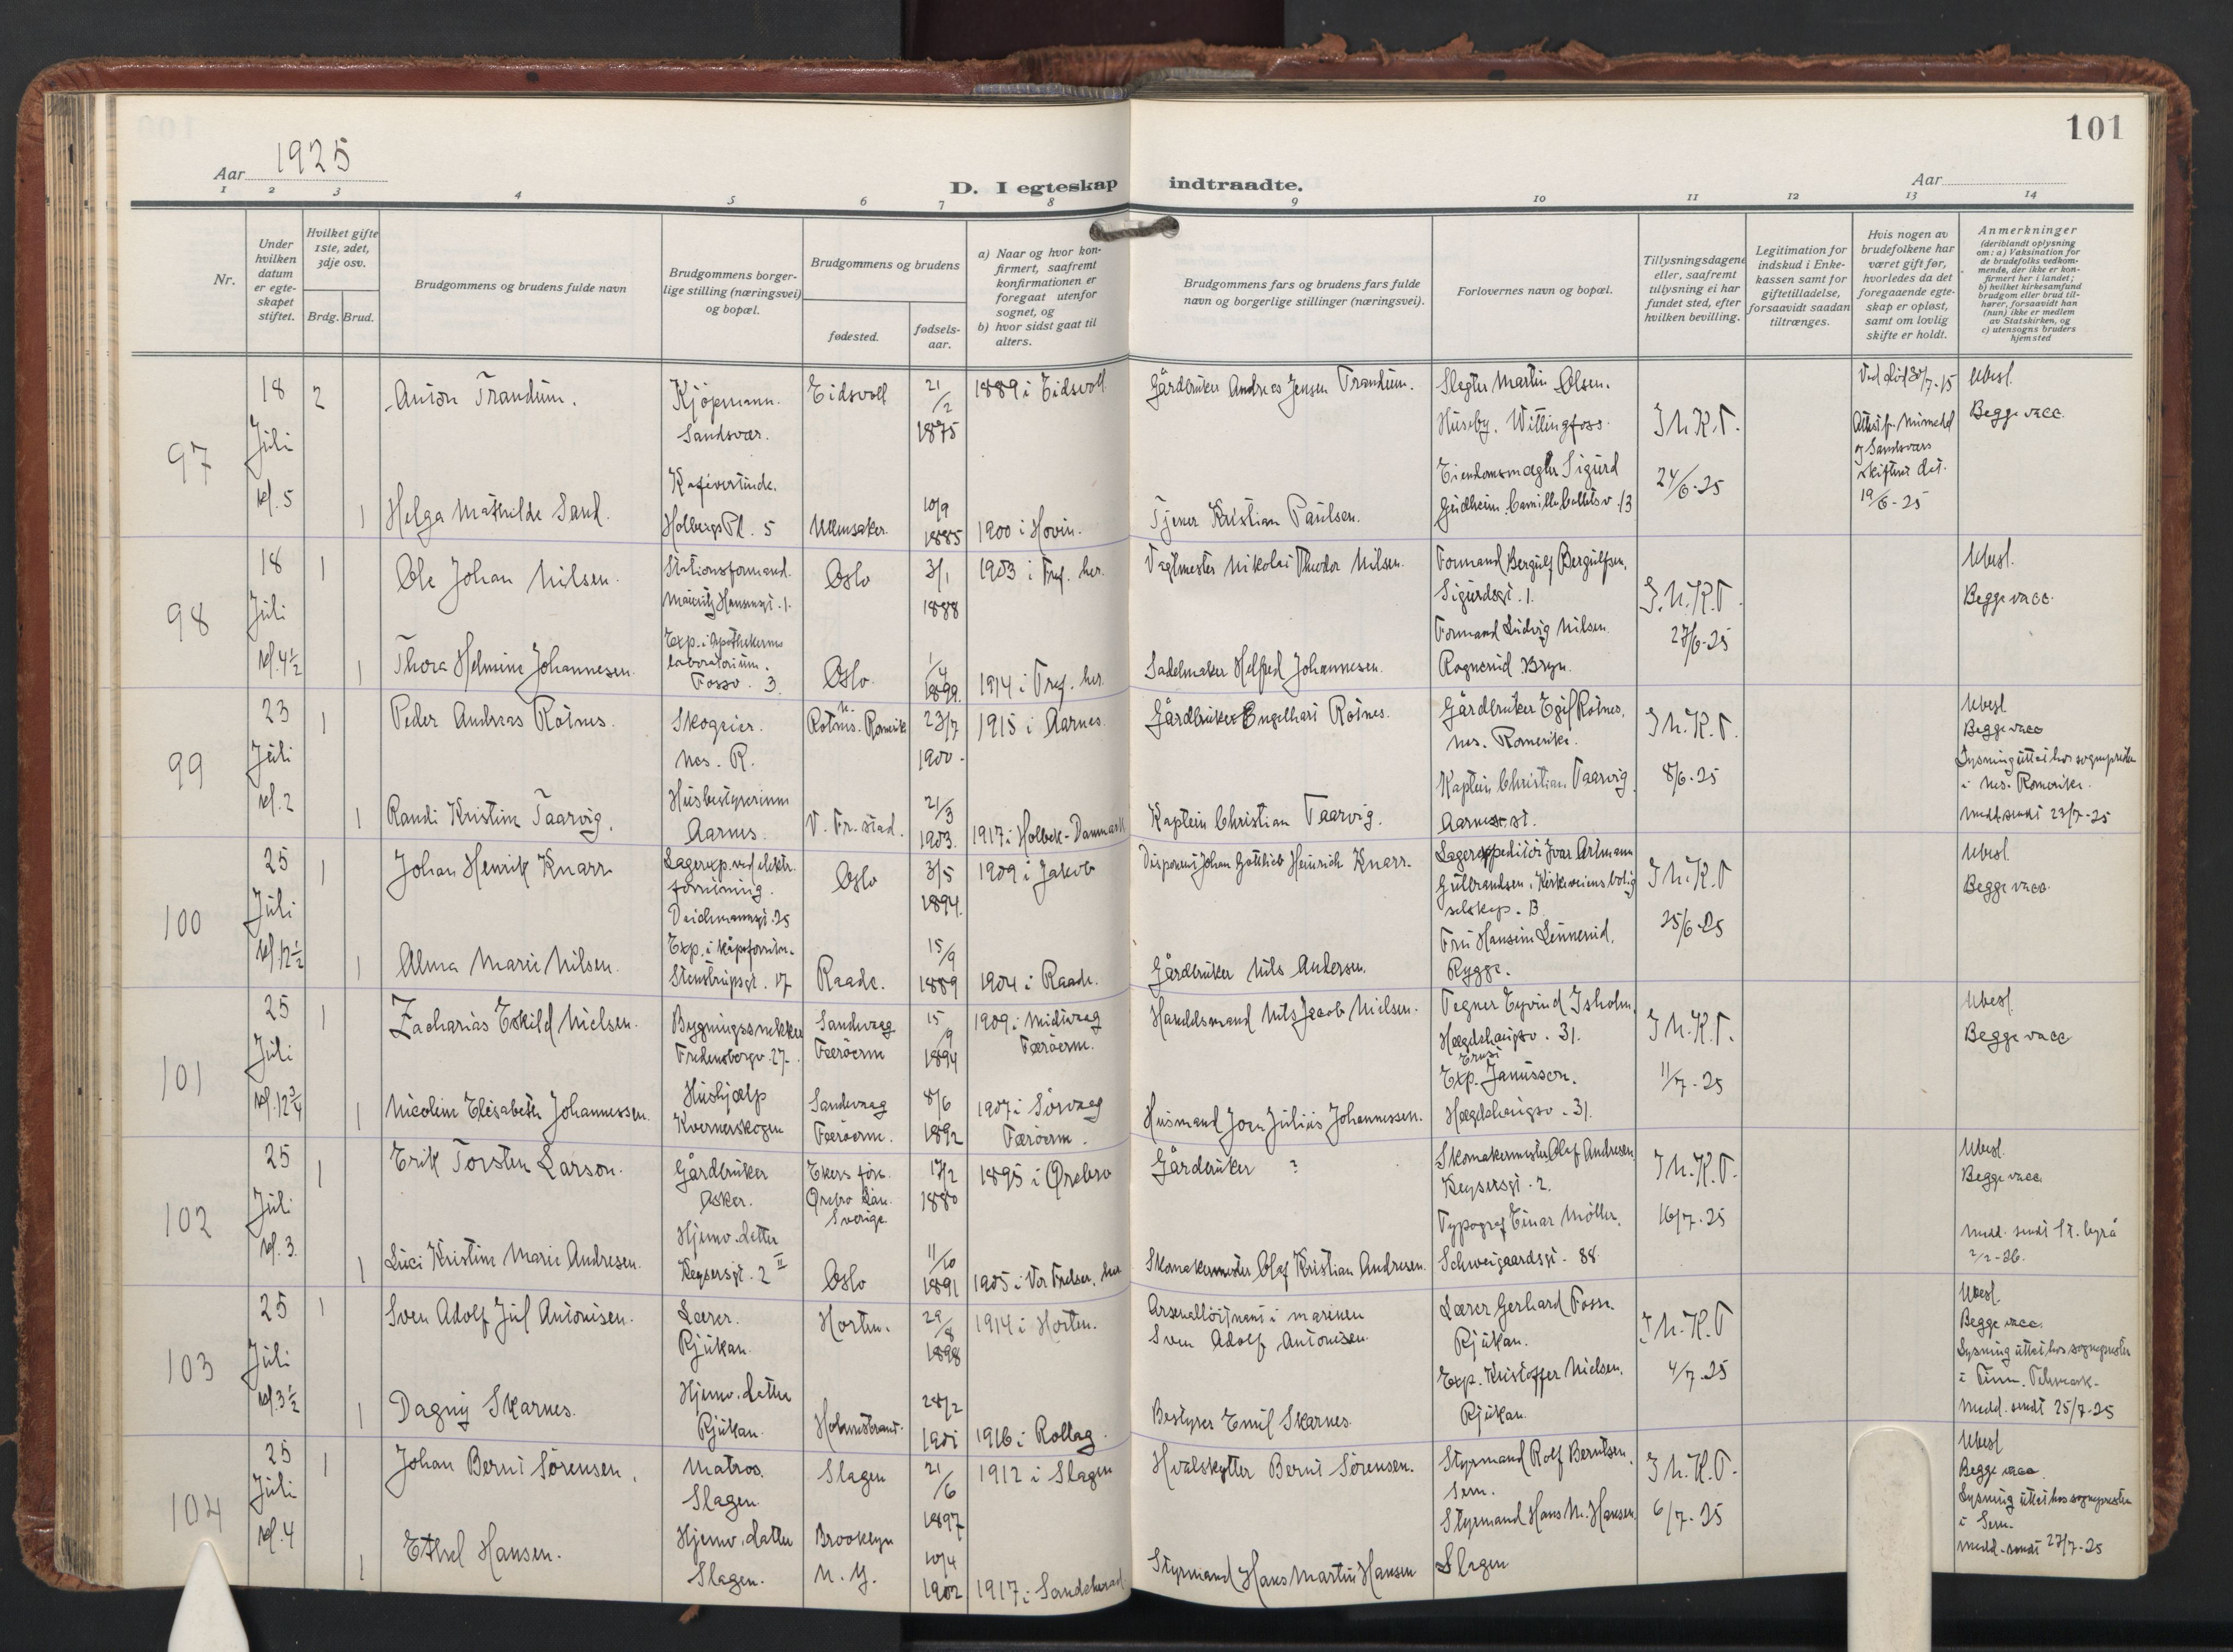 101
Aar 1925
D. I egteskap indtraadte.
Aar
1 2 3 4 5 6 7 8 9 10 11 12 13 14
Nr.
Under hvilken datum er egteskapet stiftet.
Hvilket gifte 1ste, 2det, 3dje osv.
Brdg. Brud.
Brudgommens og brudens fulde navn
Brudgommens borgerlige stilling (næringsvei) og bopæl.
Brudgommens og brudens
fødested.
fødselsaar.
a) Naar og hvor konfirmert, saafremt konfirmationen er foregaat utenfor sognet, og
b) hvor sidst gaat til alters.
Brudgommens fars og brudens fars fulde navn og borgerlige stillinger (næringsvei).
Forlovernes navn og bopæl.
Tillysningsdagene eller, saafremt tillysning ei har fundet sted, efter hvilken bevilling.
Legitimation for indskud i Enkekassen samt for giftetilladelse, forsaavidt saadan tiltrænges.
Hvis nogen av brudefolkene har været gift før, hvorledes da det foregaaende egteskap er opløst, samt om lovlig skifte er holdt.
Anmerkninger (deriblandt oplysning om: a) Vaksination for de brudefolks vedkommende, der ikke er konfirmert her i landet; b) hvilket kirkesamfund brudgom eller brud tilhører, forsaavidt han (hun) ikke er medlem av Statskirken, og c) utensogns bruders hjemsted
97
18 Juli kl. 5
2 Anton Trandum. Kjøpmann. Sandsvær. Eidsvoll 21/2 1875 1889 i Eidsvoll
Gårdbruker Andreas Jensen Trandum. Slagter Martin Olsen. Huseby. Wittingfoss. I.N.K.T. 24/6-25
Ubesl. Begge vacc.
1 Helga Mathilde Sand. Kafevertinde. Holbergs Pl. 5 Ullensaker. 10/9 1885 1900 i Hovin.
Tjener Kristian Paulsen. Eiendomsmægler Sigurd Gudheim. Camilla Colletsv. 13
19/6-25
98
18 Juli kl. 4½
1 Ole Johan Nilsen. Stationsformand. Mauritz Hansensgt. 1. Oslo 3/1 1888 1903 i Tref. her.
Faglmester Nikolai Theodor Nilsen. Formand Bergulf Bergulfsen. Sigurdsgt. 1. I.N.K.T. 27/6-25
Ubesl. Begge vacc.
1 Thora Helmine Johannesen. Exp. i Apothekernes laboratorium. Fossv. 3. Oslo. 1/4 1899. 1914 i Tref. her.
Sadelmaker Helfred Johannesen. Formand Ludvig Nilsen. Rognerud. Bryn.
99
23 Juli kl. 2
1 Peder Andreas Rotnes. Skogeier. Nes. R. Rotnes. N. Romerik 23/7 1900. 1915 i Aarnes.
Gårdbruker Engelhart Rotnes. Gårdbruker Egil Rotnes. Nes. Romerike. I.N.K.T. 8/6-25
Ubesl. Begge vacc Lysning uttat hos sogneprsten i Nes. Romerike. Medd. sendt 23/7-25
1 Randi Kristine Taarvig. Husbestyrerinne Aarnes. V. Fr.stad. 21/3 1903. 1917 i Holbek-Danmark
Kaptein Christian Taarvig. Kaptein Christian Taarvig. Aarnes st.
100
25 Juli kl. 12½
1 Johan Henrik Knarr Lagerexp. ved elektr. forretning. Deichmannsgt. 25 Oslo 3/5 1894. 1909 i Jakob
Disponent Johan Gottlieb Heinrich Knarr. Lagerexpeditør Ivar Artmann Gulbrandsen. Kirkeveiens bolig selskap. B. I.N.K.T 25/6-25
Ubesl. Begge vacc.
1 Alma Marie Nilsen. Exp. i kåpeforretn. Stenstrupsgt. 17 Raade. 15/9 1889 1904 i Raade.
Gårdbruker Nils Andersen. Fru Hansine Linnerud. Rygge.
101
25 Juli kl. 12¾
1 Zacharias Eskild Nielsen. Bygningssnekker Fredensborgv. 27. Sandevaag Færöerne 15/9 1894 1909 i Midtvaag Færöerne.
Handelsmand Nils Jacob Nielsen. Tegner Eyvind Isholm. Hægdehaugsv. 31. I.N.K.T. 11/7-25
Ubesl. Begge vacc
1 Nicoline Elisabeth Johannessen. Hushjælp Kvernerskogen Sandevaag Færöerne. 8/6 1892 1907 i Sörvaag Færöerne.
Husmand Joen Julius Johannessen. Exp. Ernst Janusson. Hægdehaugsv. 31.
102
25 Juli kl. 3.
1 Erik Torsten Larson. Gårdbruker Asker. Ekers förs. Örebro Län. Sverige. 17/2 1880 1895 i Ørebro
Gårdbruker ? Skomakermester Olaf Andresen. Keysersgt. 2. I.N.K.T. 16/7-25
Ubesl. Begge vacc Medd. sendt St. byrå 2/2-26.
1 Luci Kristine Marie Andresen. Hjemv. datter Keysersgt. 2 II Oslo 11/10 1891 1905 i Vor Frelser. her
Skomakermester Olaf Kristian Andresen. Typograf Einar Möller. Schweigaardsgt. 88.
103
25 Juli kl. 3½
1 Sven Adolf Jul Antonisen. Lærer. Rjukan. Horten. 29/8 1898 1914 i Horten.
Arsenalløitnant i marinen Sven Adolf Antonisen. Lærer Gerhard Fosse. Rjukan. I.N.K.T 4/7-25
Ubesl. Begge vacc. Lysning uttat hos sogneprsten i Tinn. Telemark. Medd. sendt 25/7-25
1 Dagny Skarnes. Hjemv. datter Rjukan. Holmestrand. 28/2 1901 1916 i Rollag.
Bestyrer Emil Skarnes. Exp. Kristoffer Nielsen. Rjukan.
104
25 Juli kl. 4
1 Johan Bernt Sörensen. Matros. Slagen. Slagen 21/6 1897 1912 i Slagen
Hvalskytter Bernt Sörensen. Styrmand Rolf Berntsen. Sem. I.N.K.T. 6/7-25
Ubesl Begge vacc. Lysning uttat hos sogneprsten i Sem. Medd. sendt 27/7-25
1 Ethel Hansen. Hjemv. datter Slagen. Brooklyn N.Y. 10/4 1902 1917 i Sandeherad
Styrmand Hans Martin Hansen Styrmand Hans M. Hansen. Slagen